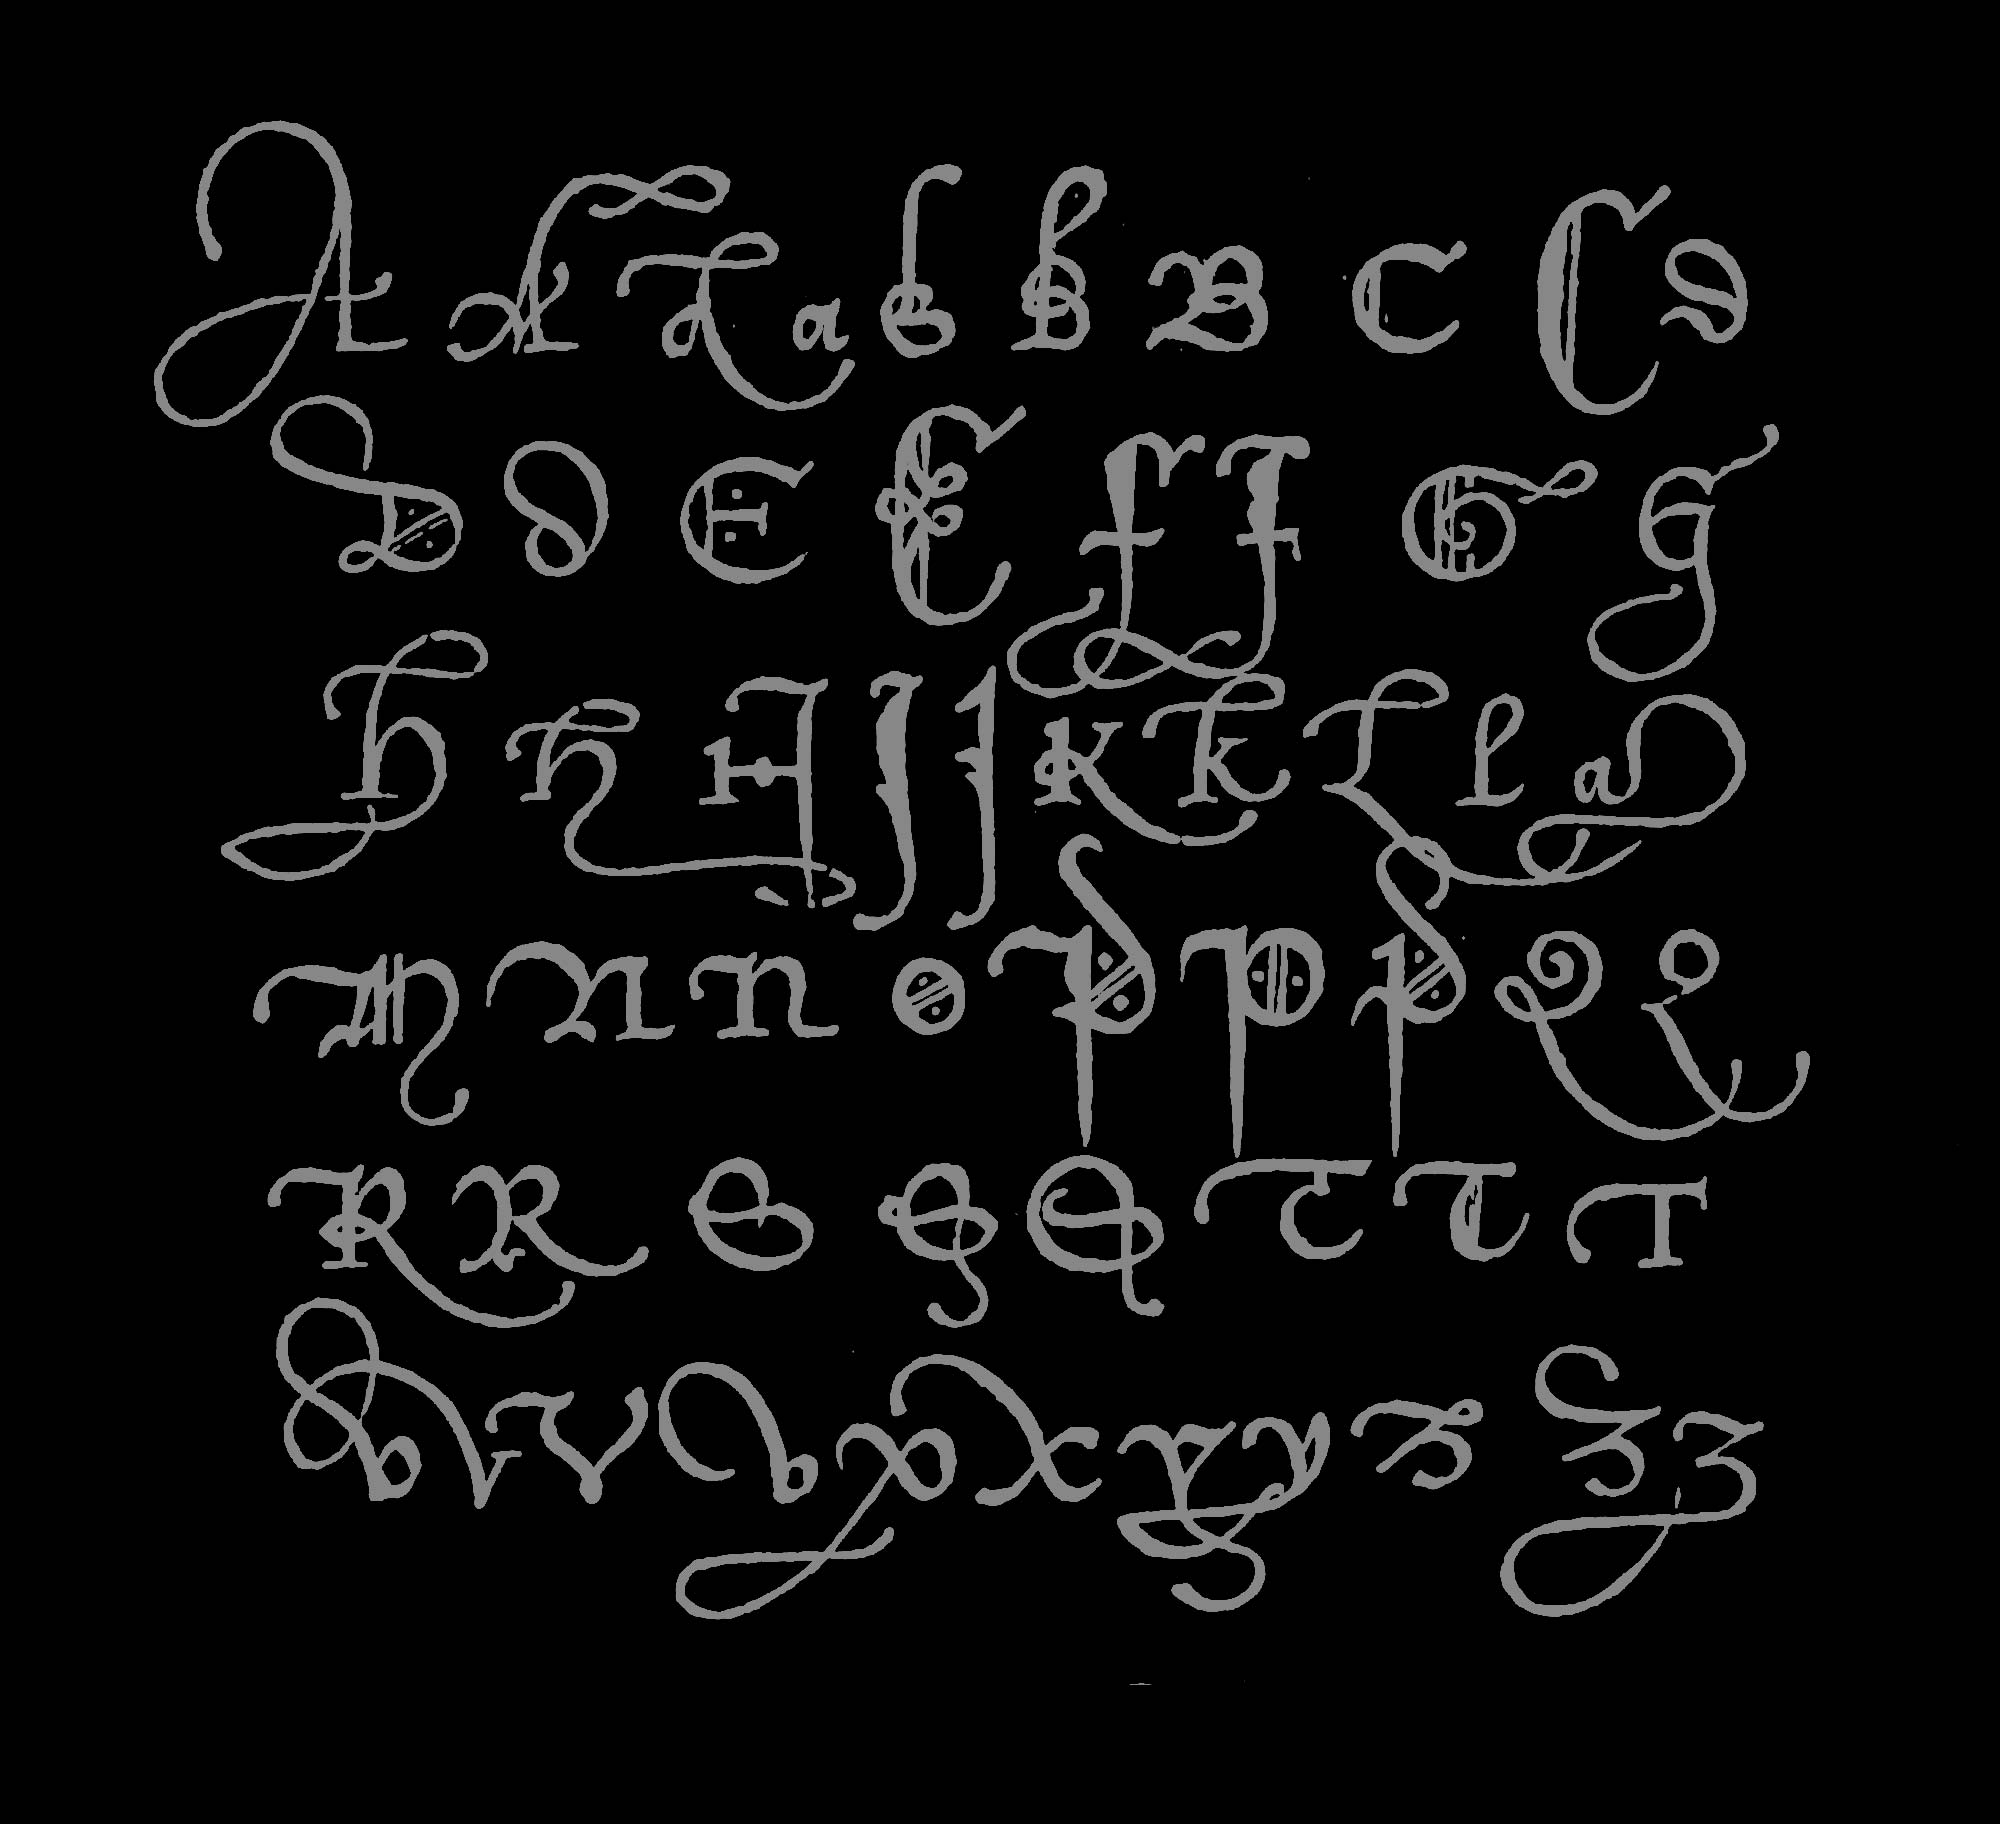 A A A a b b B C C D
D D E E F F G g
h h H J J K K L l M
M N N O P P P Q Q
R R S S S T T T
V V V X X Y Y Z Z Z